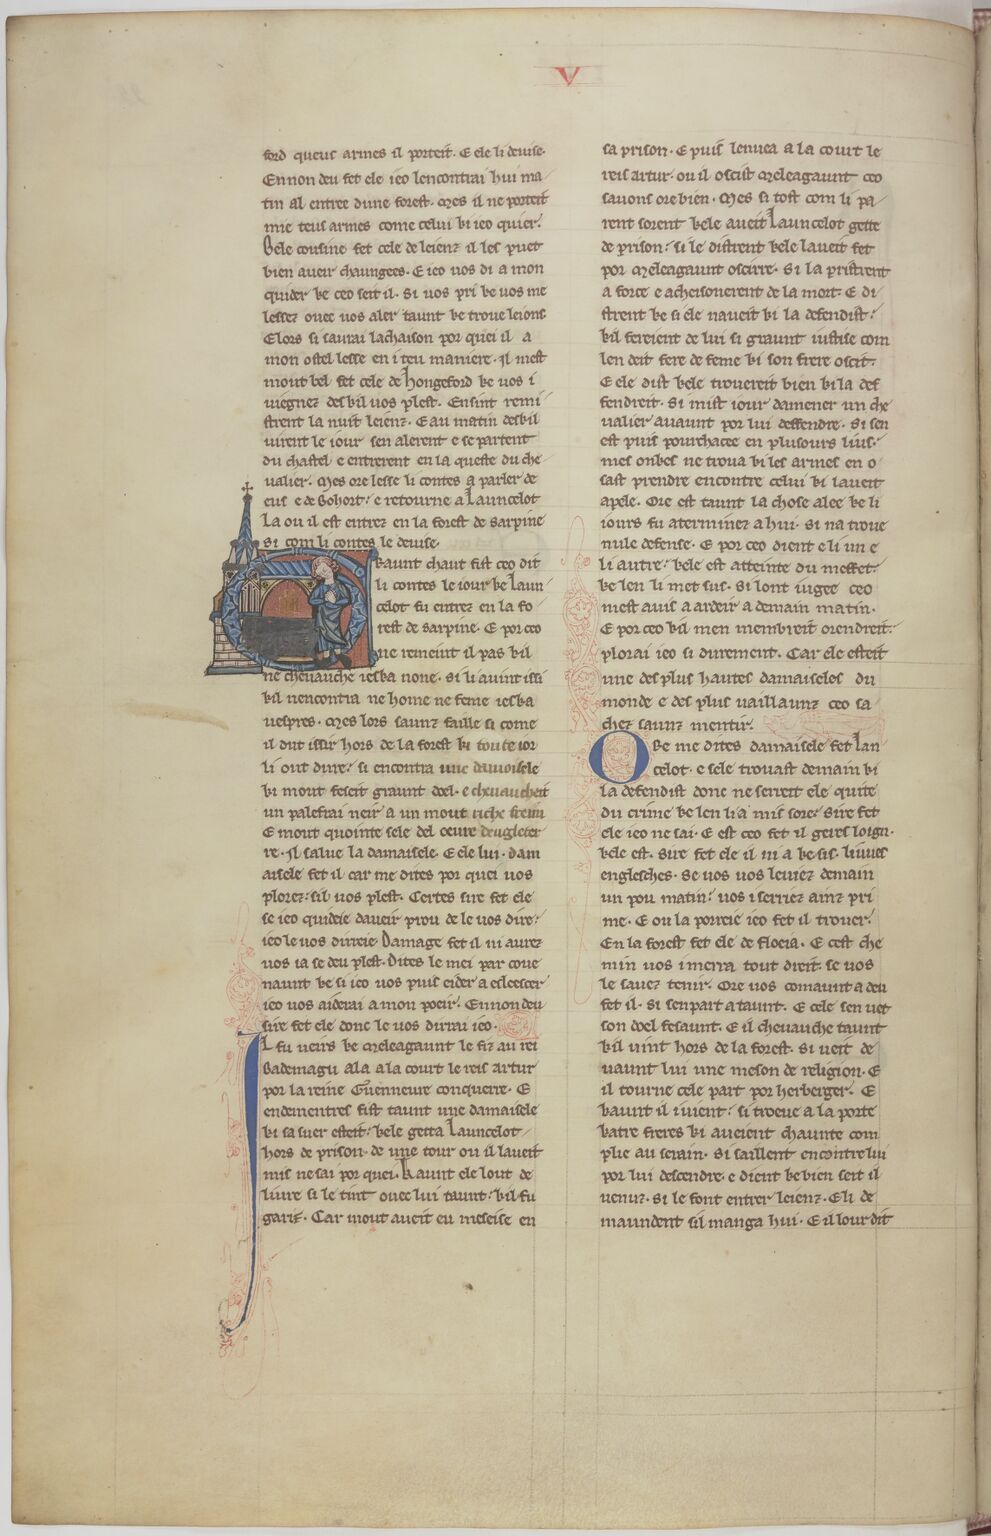 V
ford queus armes il porteit. E ele li deuise.
Ennon deu fet ele ieo lencontrai hui ma
tin al entree dune forest. Mes il ne porteit
mie teus armes come celui ki ieo quier.
Bele cousine fet cele de leienz il les puet
bien aueir chaungees. E ieo uos di a mon
quider ke ceo seit il. Si uos pri ke uos me
lessez ouec uos aler taunt ke troueleions
Elors si saurai lachaison por quei il a
mon ostel lesse en iteu maniere. Il mest
mout bel fet cele de hongeford ke uos i
uiegnez deskil uos plest. Ensint remi
strent la nuit leienz. E au matin deskil
uirent le iour sen alerent e se partent
du chastel e entrerent en la queste du che
ualier. Mes ore lesse li contes a parler de
eus e de Bohort. e retourne a Launcelot
La ou il est entrez en la forest de sarpine
si com li contes le deuise.
Kaunt chaut fist ceo dit
li contes le iour ke Laun
celot fu entrez en la fo
rest de sarpine. E por ceo
ne remeint il pas kil
ne cheuauche ieska none. si li auint issi
kil nencontra ne home ne feme ieska
uespres. Mes lors saunz faille si come
il dut issir hors de la forest ki toute ior
li out dure. si encontra une damoisele
ki mout feseit graunt doel. e cheuaucheit
un palefrai neir a un mout riche frein
E mout quointe sele del oeure deugleter
re. Il salue la damaisele. E ele lui. dam
aisele fet il car me dites por quei uos
plorez. sil uos plest. Certes sire fet ele
se ieo quideie daueir prou de le uos dire.
ieo le uos dirreie. Damage fet il ni aurez
uos ia se deu plest. Dites le mei par coue
naunt ke si ieo uos puis eider a esleescer
ieo uos aiderai a mon poeir. Ennon deu
sire fet ele donc le uos dirrai ieo.
IL fu ueirs ke Meleagaunt le fiz au rei
Bademagu ala a la court le reis artur
por la reine Guenneure conquerre. E
endementres fist taunt une damaisele
ki sa suer esteit. kele getta Launcelot
hors de prison. de une tour ou il laueit
mis ne sai por quei. Kaunt ele lout de
liure si le tint ouec lui taunt. kil fu
gariz. Car mout aueit eu meseise en
sa prison. E puis lenuea a la court le
reis artur. ou il oscist Meleagaunt ceo
sauons ore bien. Mes si tost com li pa
rent sorent kele aueit Launcelot gette
de prison. si le distrent kele laueit fet
por Meleagaunt oscirre. Si la pristrent
a force e acheisonerent de la mort. E di
strent ke si ele naueit ki la defendist.
kil fereient de lui si graunt iustise com
len deit fere de feme ki son frere oscit.
E ele dist kele trouereit bien ki la def
fendreit. Si mist iour damener un che
ualier auaunt por lui deffendre. Si sen
est puis pourchacee en plusours lius.
mes onkes ne troua ki les armes en o
sast prendre encontre celui ki laueit
apele. Ore est taunt la chose alee ke li
iours fu aterminez a hui. si na troue
nule defense. E por ceo dient e li un e
li autre. kele est atteinte du meffet.
ke len li met sus. Si lont iugee ceo
mest auis a ardeir a demain matin.
E por ceo kil men membreit orendreit.
plorai ieo si durement. Car ele esteit
une des plus hautes damaiseles du
monde e des plus uaillaunz ceo sa
chez saunz mentir.
Ore me dites damaisele fet Lan
celot. e sele trouast demain ki
la defendist donc ne sereit ele quite
du crime ke len li a mis sore. Sire fet
ele ieo ne sai. E est ceo fet il geires loign.
kele est. Sire fet ele il ni a ke sis liuues
englesches. Se uos uos leuiez demain
un pou matin. uos i serriez ainz pri
me. E ou la porreie ieo fet il trouer.
En la forest fet ele de floeia. E cest che
min uos i merra tout dreit. se uos
le sauez tenir. Ore uos comaunt a deu
fet il. Si senpart ataunt. E cele sen uet
son doel fesaunt. E il cheuauche taunt
kil uint hors de la forest. si ueit de
uaunt lui une meson de religion. E
il tourne cele part por herberger. E
kaunt il i uient. si troeue a la porte
katre freres ki aueient chaunte com
plie au serain. Si saillent encontre lui
por lui descendre. e dient ke bien seit il
uenuz. Si le font entrer leienz. E li de
maundent sil manga hui. E il lour dit